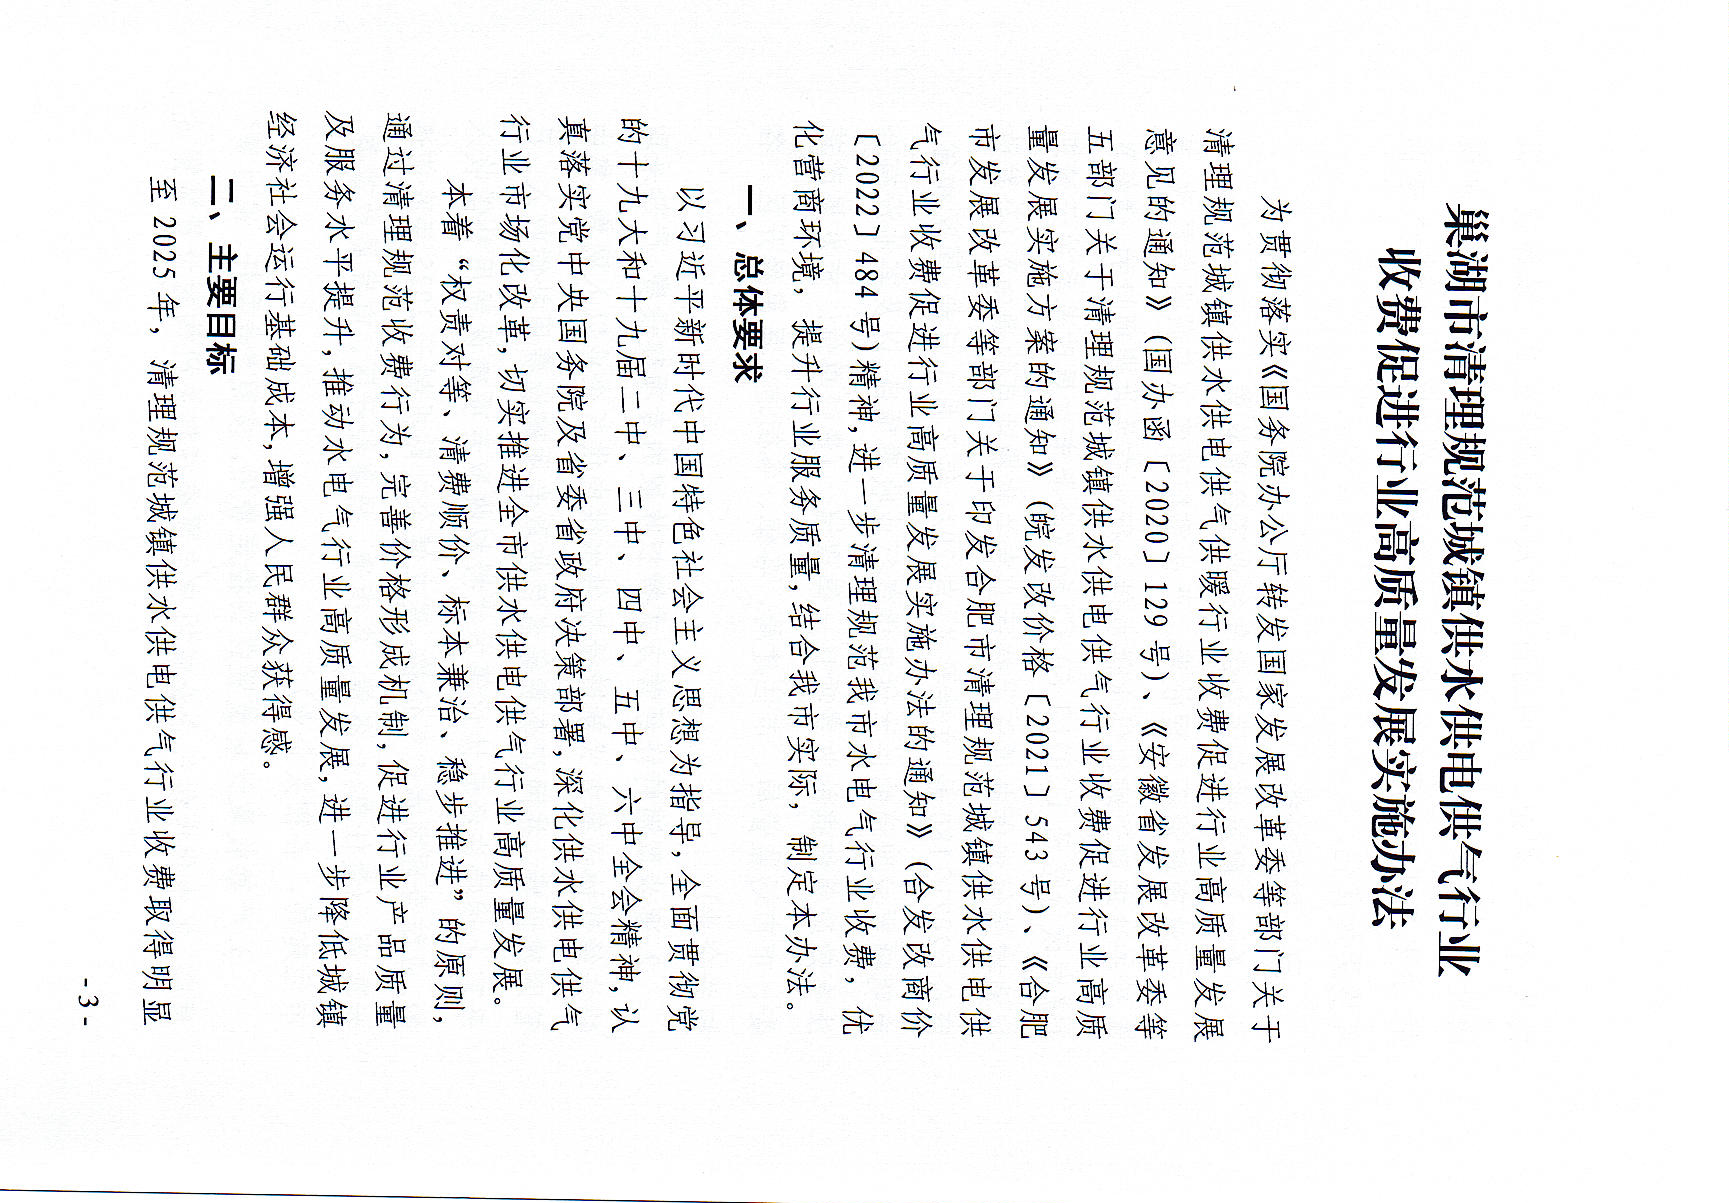 巢湖市清理规范城镇供水供电供气行业
收费促进行业高质量发展实施办法
为贯彻落实《国务院办公厅转发国家发展改革委等部门关于
清理规范城镇供水供电供气供暖行业收费促进行业高质量发展
意见的通知》（国办函〔2020〕129号）、《安徽省发展改革委等
五部门关于清理规范城镇供水供电供气行业收费促进行业高质
量发展实施方案的通知》（皖发改价格〔2021〕543号）、《合肥
市发展改革委等部门关于印发合肥市清理规范城镇供水供电供
气行业收费促进行业高质量发展实施办法的通知》（合发改商价
〔2022〕484号）精神，进一步清理规范我市水电气行业收费，优
化营商环境，提升行业服务质量，结合我市实际，制定本办法。
一、总体要求
以习近平新时代中国特色社会主义思想为指导，全面贯彻党
的十九大和十九届二中、三中、四中、五中、六中全会精神，认
真落实党中央国务院及省委省政府决策部署，深化供水供电供气
行业市场化改革，切实推进全市供水供电供气行业高质量发展。
本着“权责对等、清费顺价、标本兼治、稳步推进”的原则，
通过清理规范收费行为，完善价格形成机制，促进行业产品质量
及服务水平提升，推动水电气行业高质量发展，进一步降低城镇
经济社会运行基础成本，增强人民群众获得感。
二、主要目标
至2025年，清理规范城镇供水供电供气行业收费取得明显
-3-